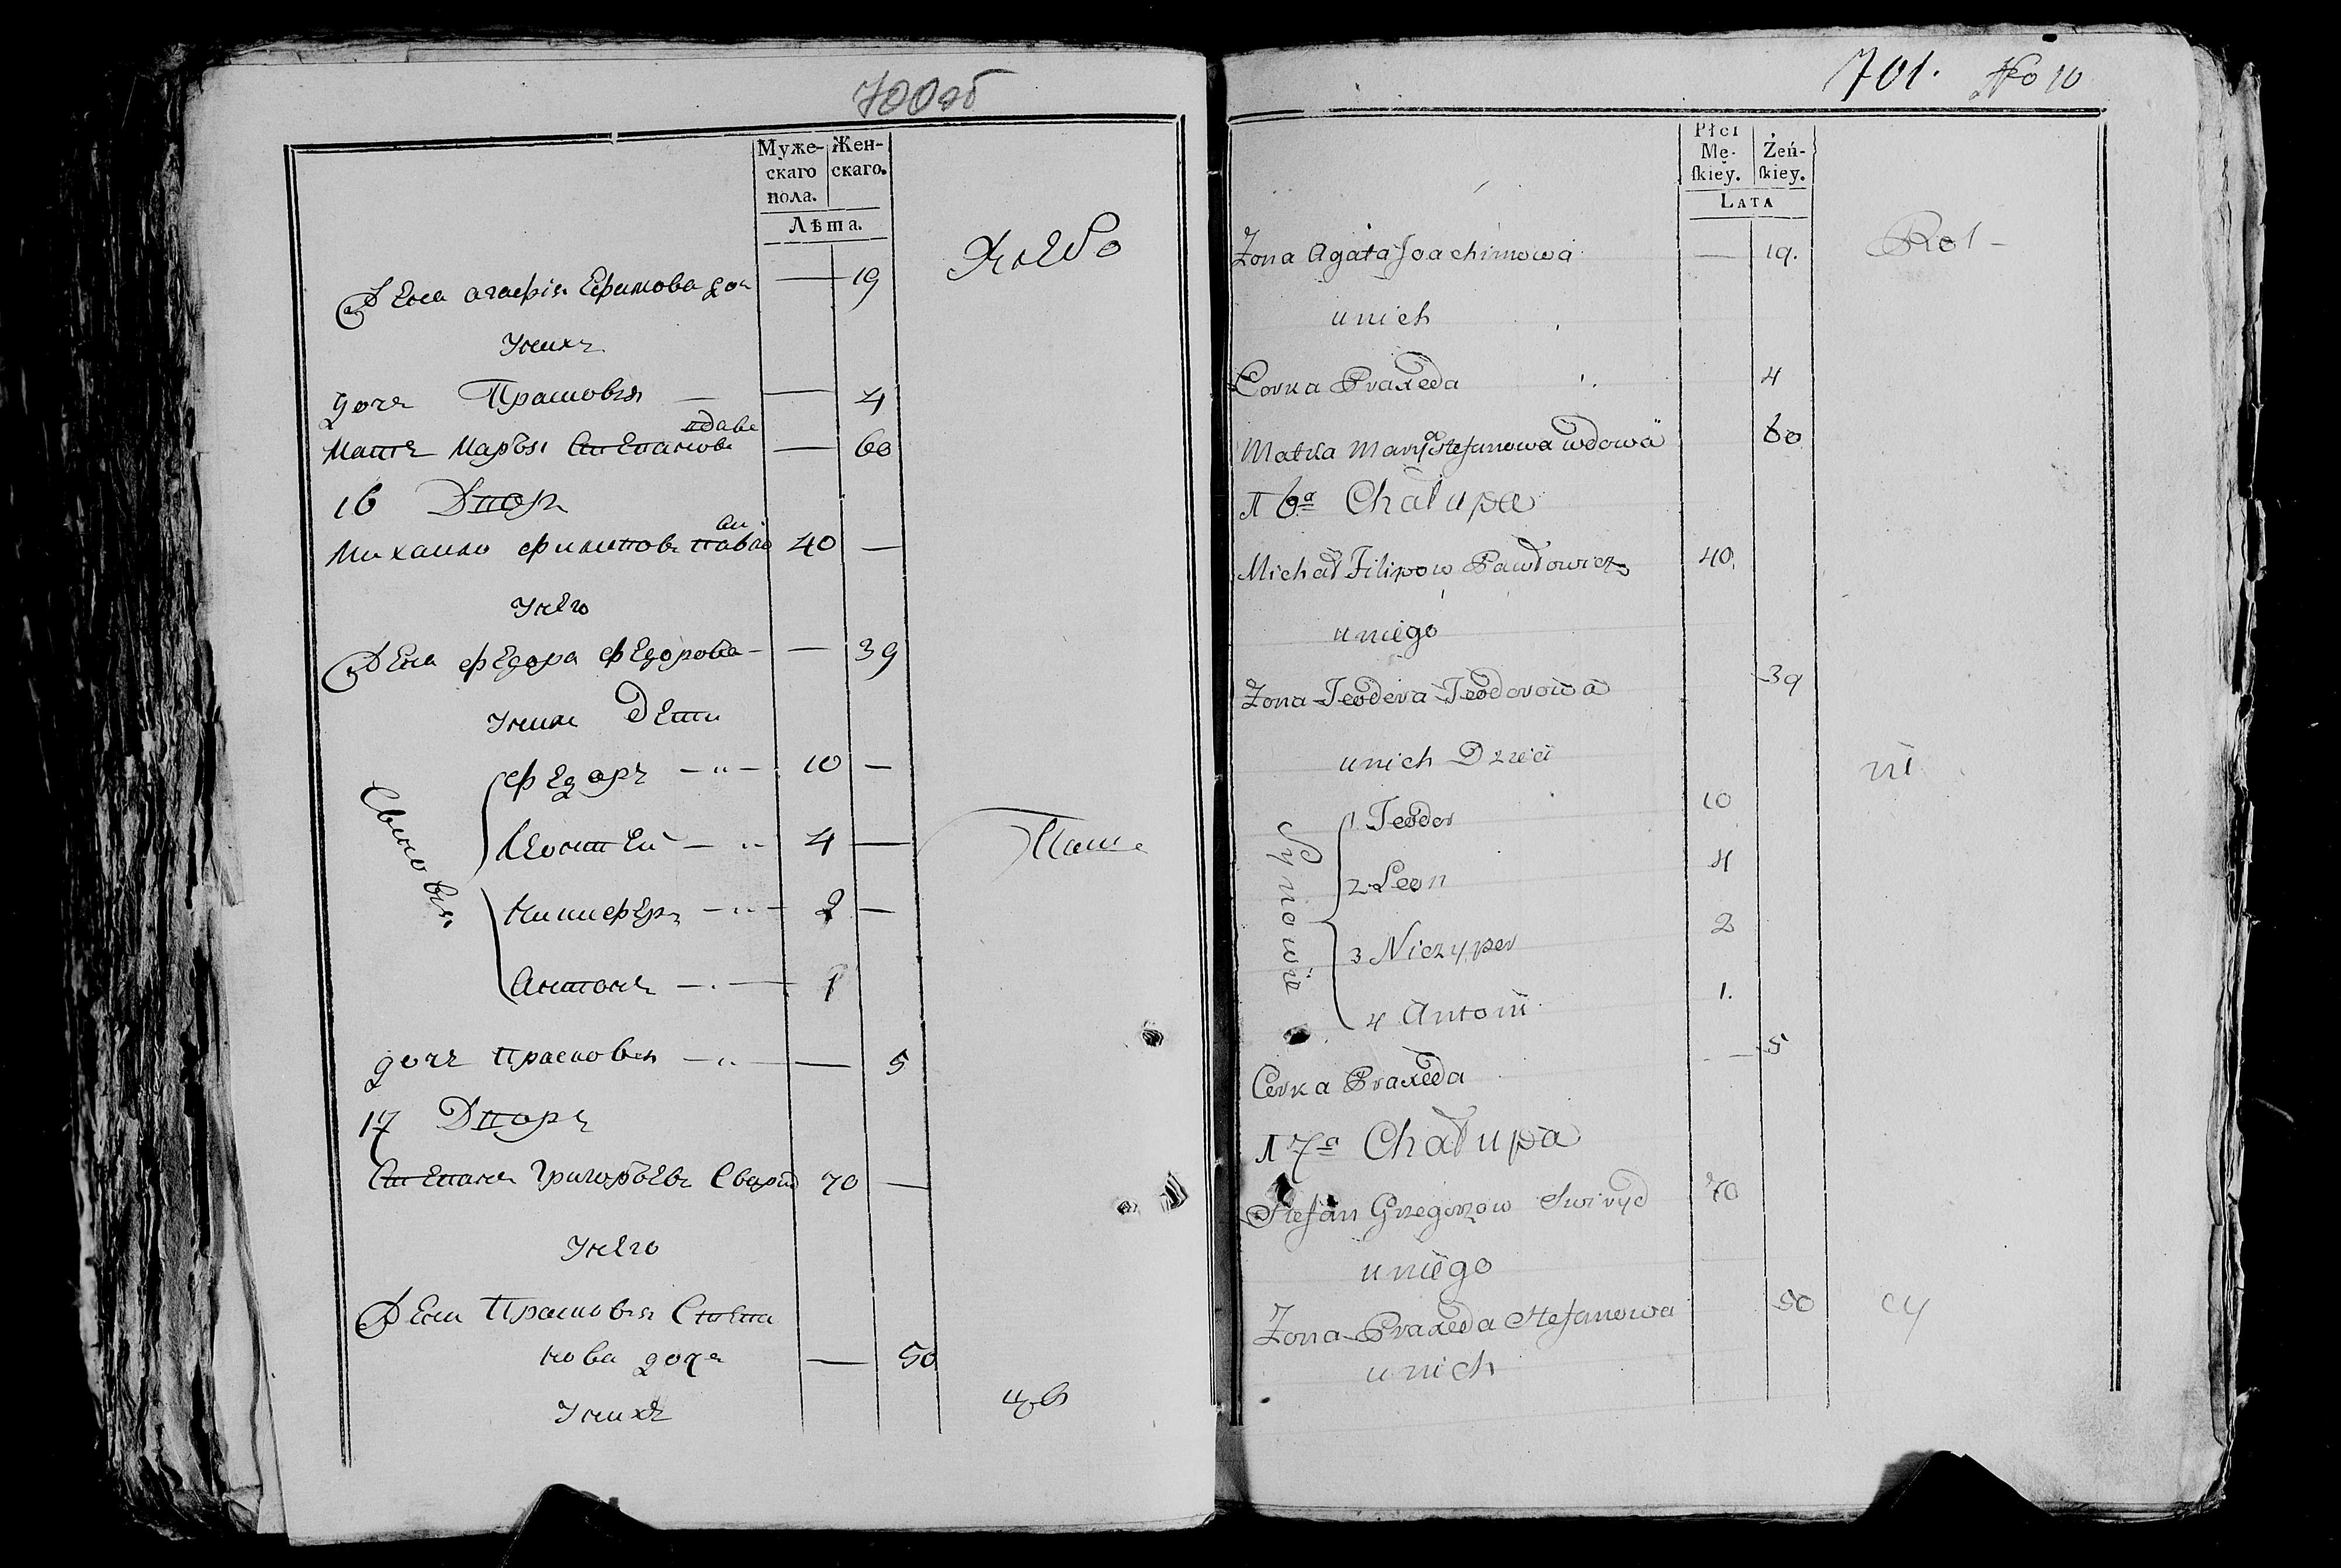 700об
Муже-
скаго
пола.
Жен-
скаго.
Лѣта.
Жена Агафія Ефимова доч — 19
Хлебо
У них
дочь Прасковья — — 4
вдова
Мать Марья Степанова — 60
16 Двор
Михаило Филипов Павло 40 —
У него
Жена Федора Федорова — — 39
У них Дети
Сыновья
Федоръ — „ — 10 —
Леонтей — „ 4 —
Паш
Ничиферъ — „ — 2 —
Антонъ — . — 1
дочь Прасковья — „ — — 5
17 Дворъ
Степанъ Григорьевъ Свирид 70 —
У него
Жена Прасковья Степа
нова дочь — 50
У нихъ
цовъ
701. No 10
Płci
Mę-
skiey.
Żeń-
skiey.
Lata
Zona Agata Joachimowa — 19.
Rol-
u nich
Corka Praxeda 4
Matka Marya Stefanowa wdowa 60
16a Chałupa
Michał Filipow Pawłowicz 40.
u niego
Zona Teodora Teodorowa 39
u nich Dzieci
ni
Synowie
1 Teodor 10
2 Leon 4
3 Niczyper 2
4 Antoni 1.
Corka Praxeda — 5
17a Chałupa
Stefan Grzegorzow Swiryd 70
u niego
Zona Praxeda Stefanowa 50
cy
u nich